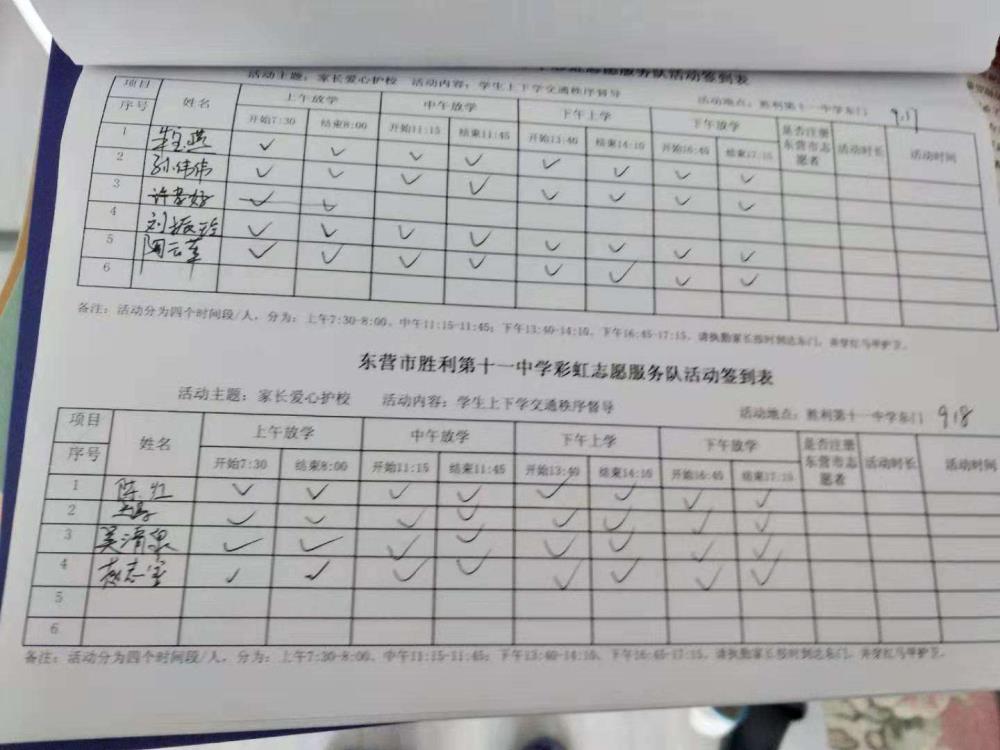 彩虹志愿服务队活动签到表
活动主题：家长爱心护校 活动内容：学生上下学交通秩序督导 活动地点：胜利第十一中学东门 9.17
项目 序号 姓名 上午放学 中午放学 下午上学 下午放学 是否注册东营市志愿者 活动时长 活动时间
开始7:30 结束8:00 开始11:15 结束11:45 开始13:40 结束14:10 开始16:45 结束17:15
1 ✓ ✓ ✓ ✓ ✓ ✓ ✓ ✓
2 孙伟伟 ✓ ✓ ✓ ✓ ✓ ✓ ✓ ✓
3 ✓ ✓
4 刘振玲 ✓ ✓ ✓ ✓ ✓ ✓ ✓ ✓
5 陶云华 ✓ ✓ ✓ ✓ ✓ ✓ ✓ ✓
6
备注：活动分为四个时间段/人，分为：上午7:30-8:00、中午11:15-11:45；下午13:40-14:10、下午16:45-17:15，请执勤家长按时到达东门，并穿红马甲护卫。
东营市胜利第十一中学彩虹志愿服务队活动签到表
活动主题：家长爱心护校 活动内容：学生上下学交通秩序督导 活动地点：胜利第十一中学东门 9.18
项目 序号 姓名 上午放学 中午放学 下午上学 下午放学 是否注册东营市志愿者 活动时长 活动时间
开始7:30 结束8:00 开始11:15 结束11:45 开始13:40 结束14:10 开始16:45 结束17:15
1 陈红 ✓ ✓ ✓ ✓ ✓ ✓ ✓ ✓
2 ✓ ✓ ✓ ✓ ✓ ✓ ✓ ✓
3 吴清泉 ✓ ✓ ✓ ✓ ✓ ✓ ✓ ✓
4 志宝 ✓ ✓ ✓ ✓ ✓ ✓ ✓ ✓
5
6
备注：活动分为四个时间段/人，分为：上午7:30-8:00、中午11:15-11:45；下午13:40-14:10、下午16:45-17:15，请执勤家长按时到达东门，并穿红马甲护卫。